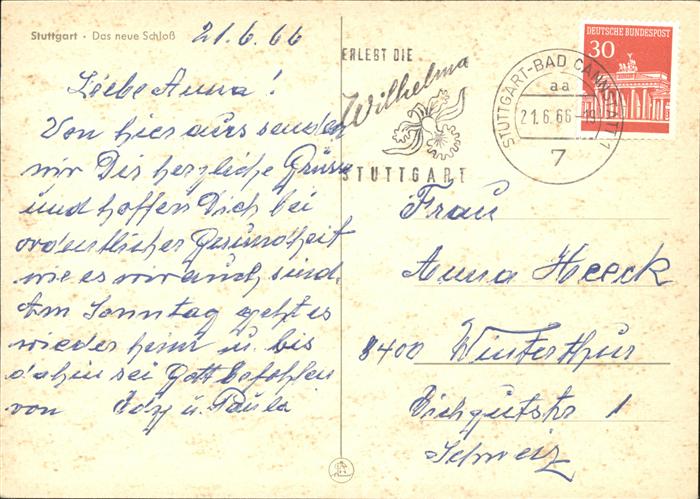 Stuttgart · Das neue Schloß
21.6.66
Liebe Anna!
Von hier aus senden
wir Dir herzliche Grüsse
und hoffen Dich bei
ordentlicher Gesundheit
wie es wir auch sind.
Am Sonntag geht es
wieder heim u. bis
dahin sei Gott befohlen
von Edy u. Paula
ERLEBT DIE
Wilhelma
STUTTGART
STUTTGART-BAD CANNSTATT 1
aa
21.6.66-19
7
DEUTSCHE BUNDESPOST
30
Frau
Anna Heeck
8400 Winterthur
Eichgutstr 1
Schweiz